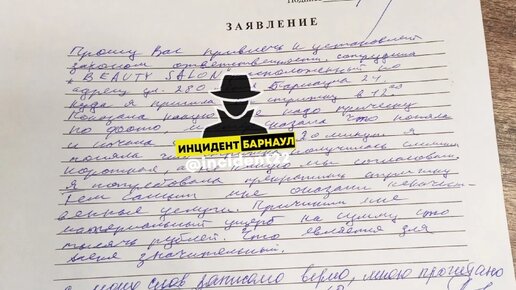 ЗАЯВЛЕНИЕ
Прошу Вас привлечь к установленной
законом ответственности, сотрудника
"BEAUTY SALON" расположенный по
адресу ул. 280 лет Барнаула 24,
куда я пришла стрижку в 12 00
Показала какую надо прическу
по фото сказала что поняла
и начала 20 минут я
поняла получилась слишком
короткая, мы согласовали.
Я потребовала прекратить стрижку
Тем самым мне оказали некачест-
венные услуги. Причинили мне
материальный ущерб на сумму сто
тысяч рублей. Что является для
меня значительный.
С моих слов записано верно, мною прочитано
ИНЦИДЕНТ БАРНАУЛ